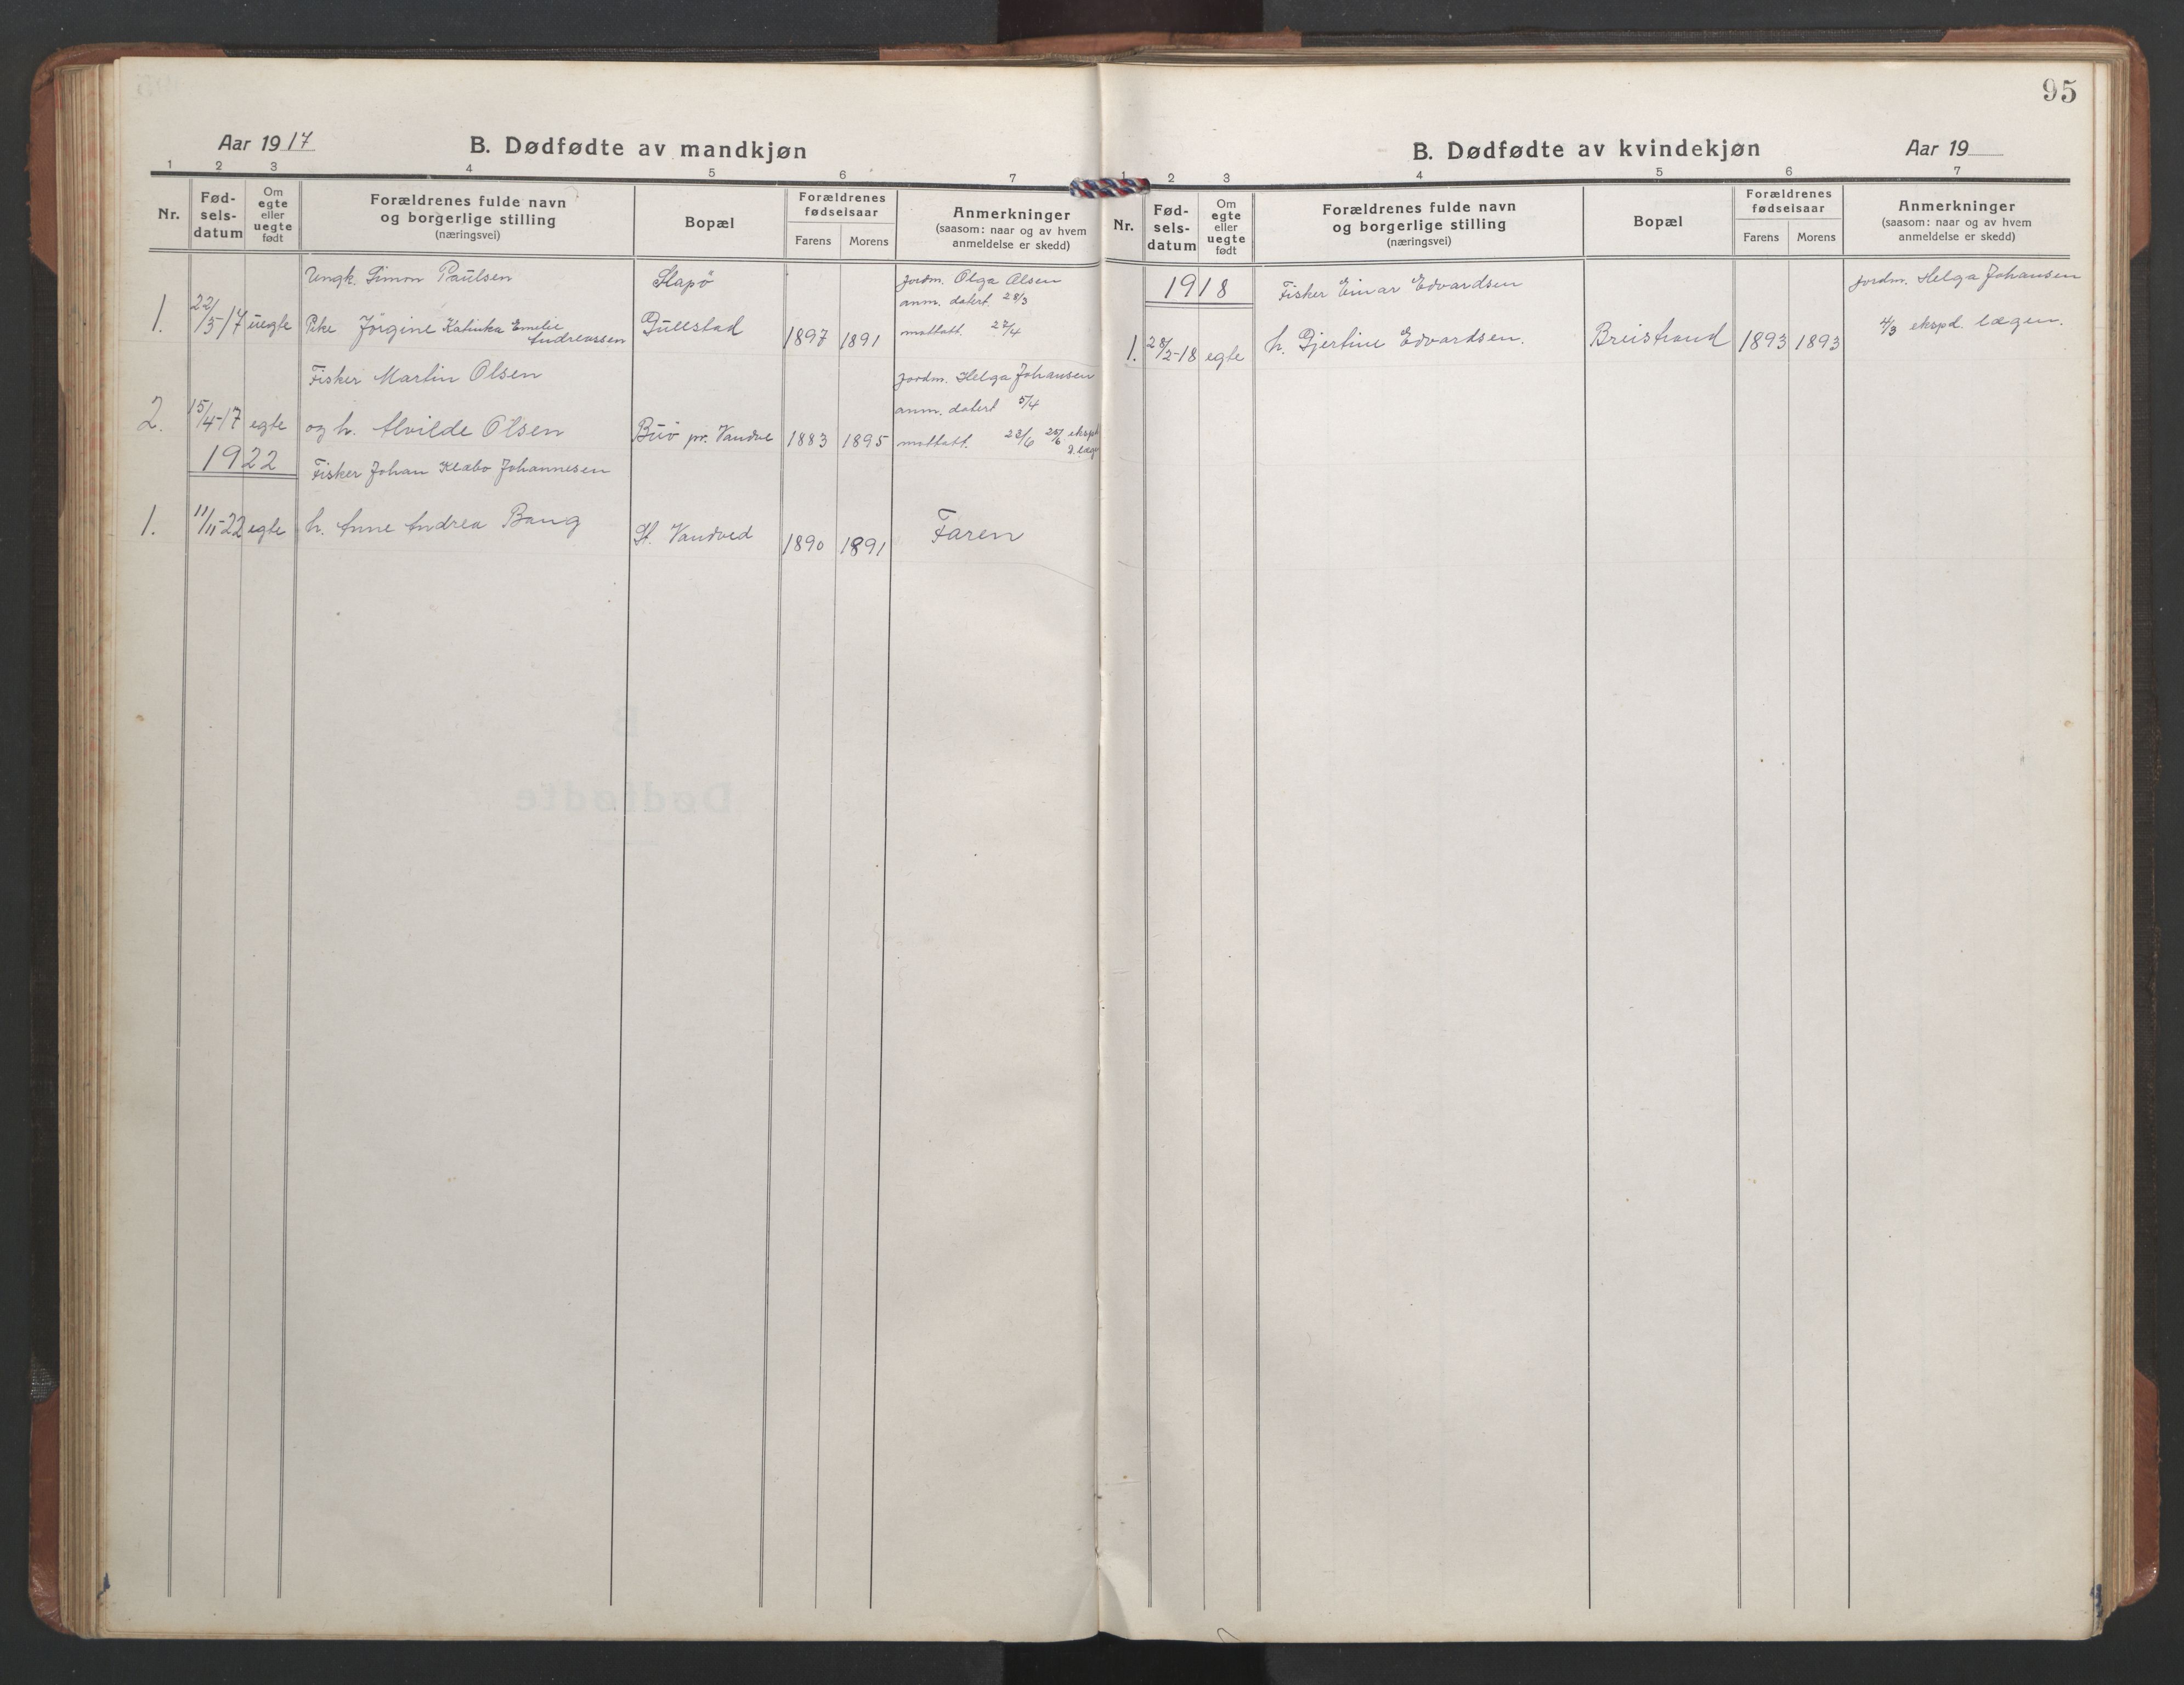 95
Aar 1917
B. Dødfødte av mandkjøn
1 2 3 4 5 6 7
Nr.
Fød-
sels-
datum
Om
egte
eller
uegte
født
Forældrenes fulde navn
og borgerlige stilling
(næringsvei)
Bopæl
Forældrenes
fødselsaar
Farens Morens
Anmerkninger
(saasom: naar og av hvem
anmeldelse er skedd)
Ungk. Simon Paulsen Slapö jordm. Olga Olsen
anm. datert 28/3
1. 22/3-17 uegte Pike Jörgine Katinka Emelie Gullstad 1897 1891 mottatt. 27/4
Andreassen
Fisker Martin Olsen jordm. Helga Johansen
anm. datert 5/4
2. 15/4-17 egte og h. Alvilde Olsen Buö pr. Vandve 1883 1895 mottatt. 23/6 25/6 ekspd
1922
Fisker Johan Klæbo Johannesen
1. 11/11-22 egte h. Anne Andrea Bang St. Vandved 1890 1891 Faren
B. Dødfødte av kvindekjøn
Aar 19
1 2 3 4 5 6 7
Nr.
Fød-
sels-
datum
Om
egte
eller
uegte
født
Forældrenes fulde navn
og borgerlige stilling
(næringsvei)
Bopæl
Forældrenes
fødselsaar
Farens Morens
Anmerkninger
(saasom: naar og av hvem
anmeldelse er skedd)
1918 Fisker Einar Edvardsen jordm. Helga Johansen
1. 28/2-18 egte h. Gjertine Edvardsen. Breistrand 1893 1893 4/3 ekspd. lægen.